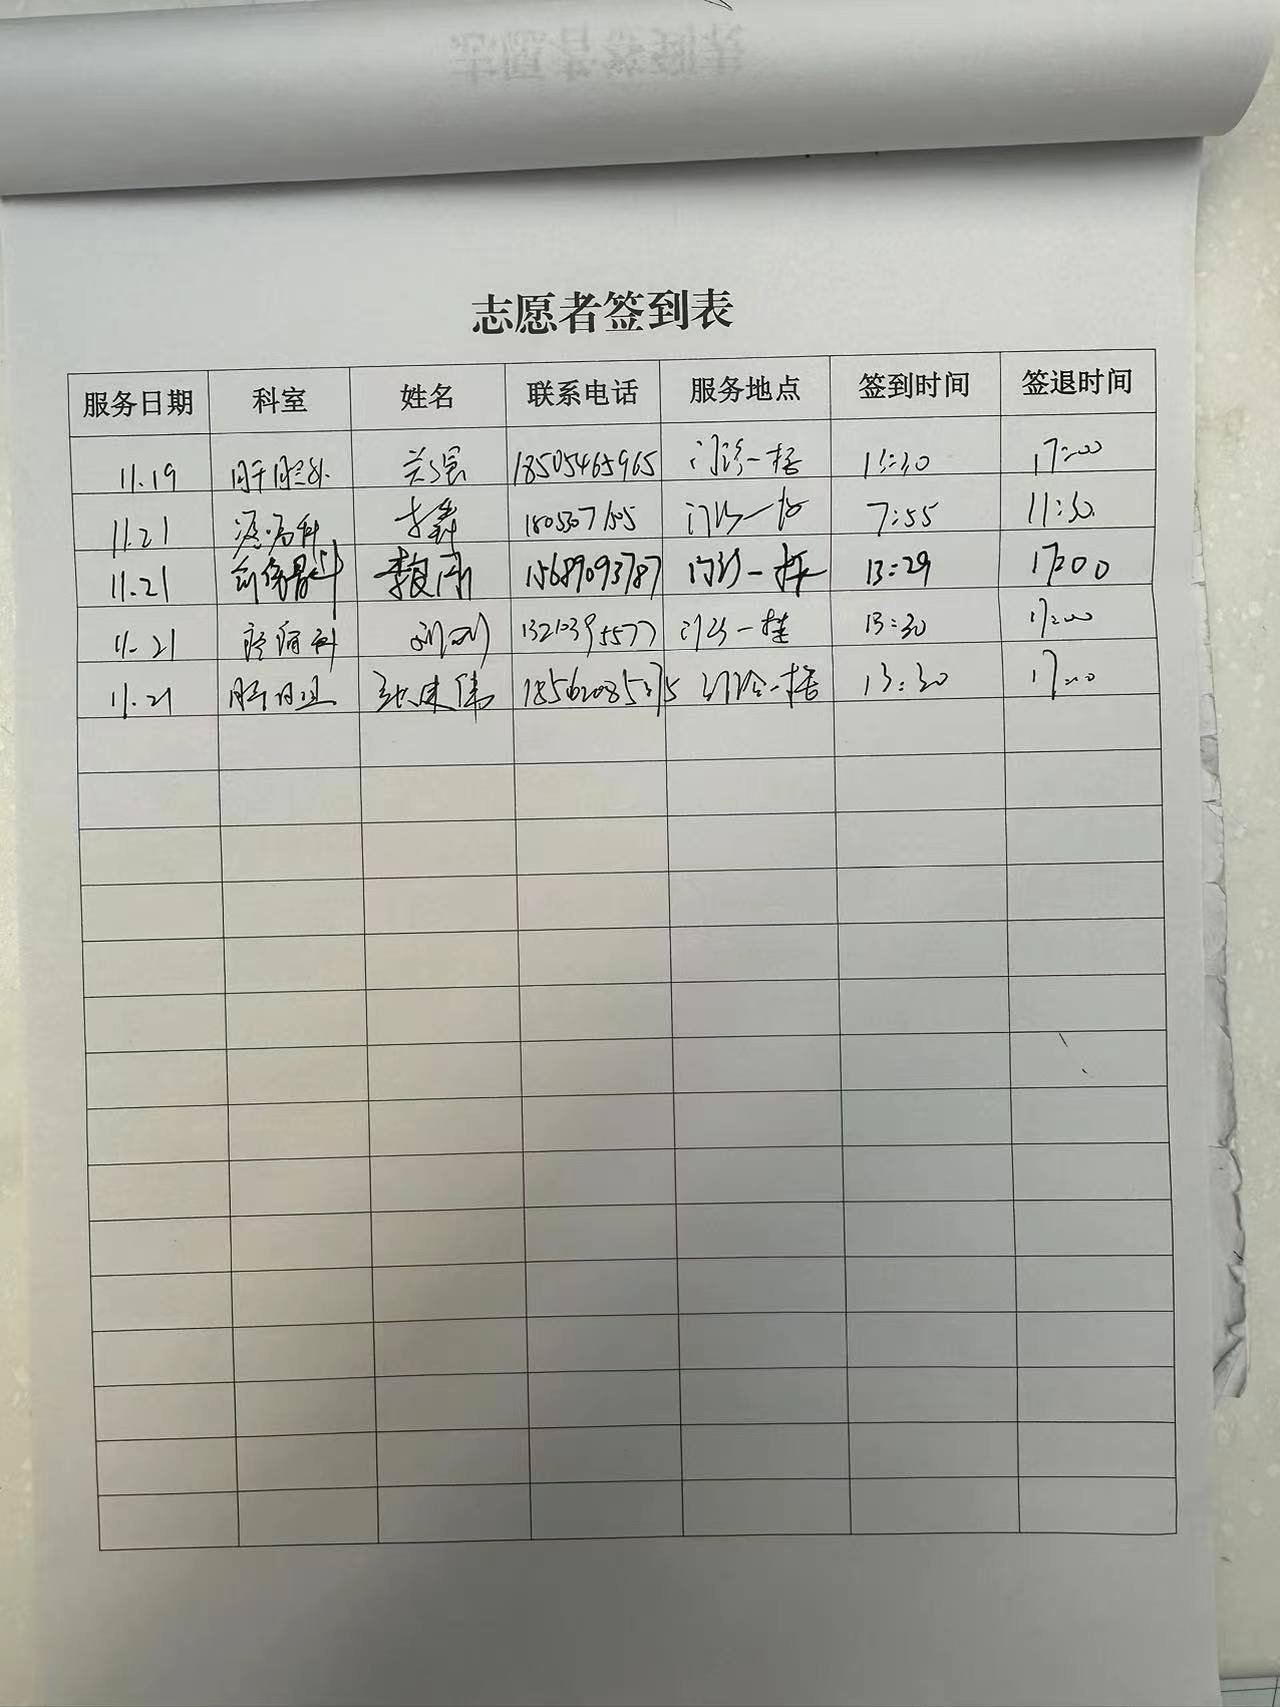 志愿者签到表
服务日期 科室 姓名 联系电话 服务地点 签到时间 签退时间
11.19 肝胆外 关强 18505465965 门诊一楼 13:30 17:00
11.21 门诊一楼 7:55 11:30
11.21 创伤骨科 15689093787 门诊一楼 13:29 17:00
11.21 疼痛科 门诊一楼 13:30 17:00
11.21 张建伟 门诊一楼 13:30 17:00